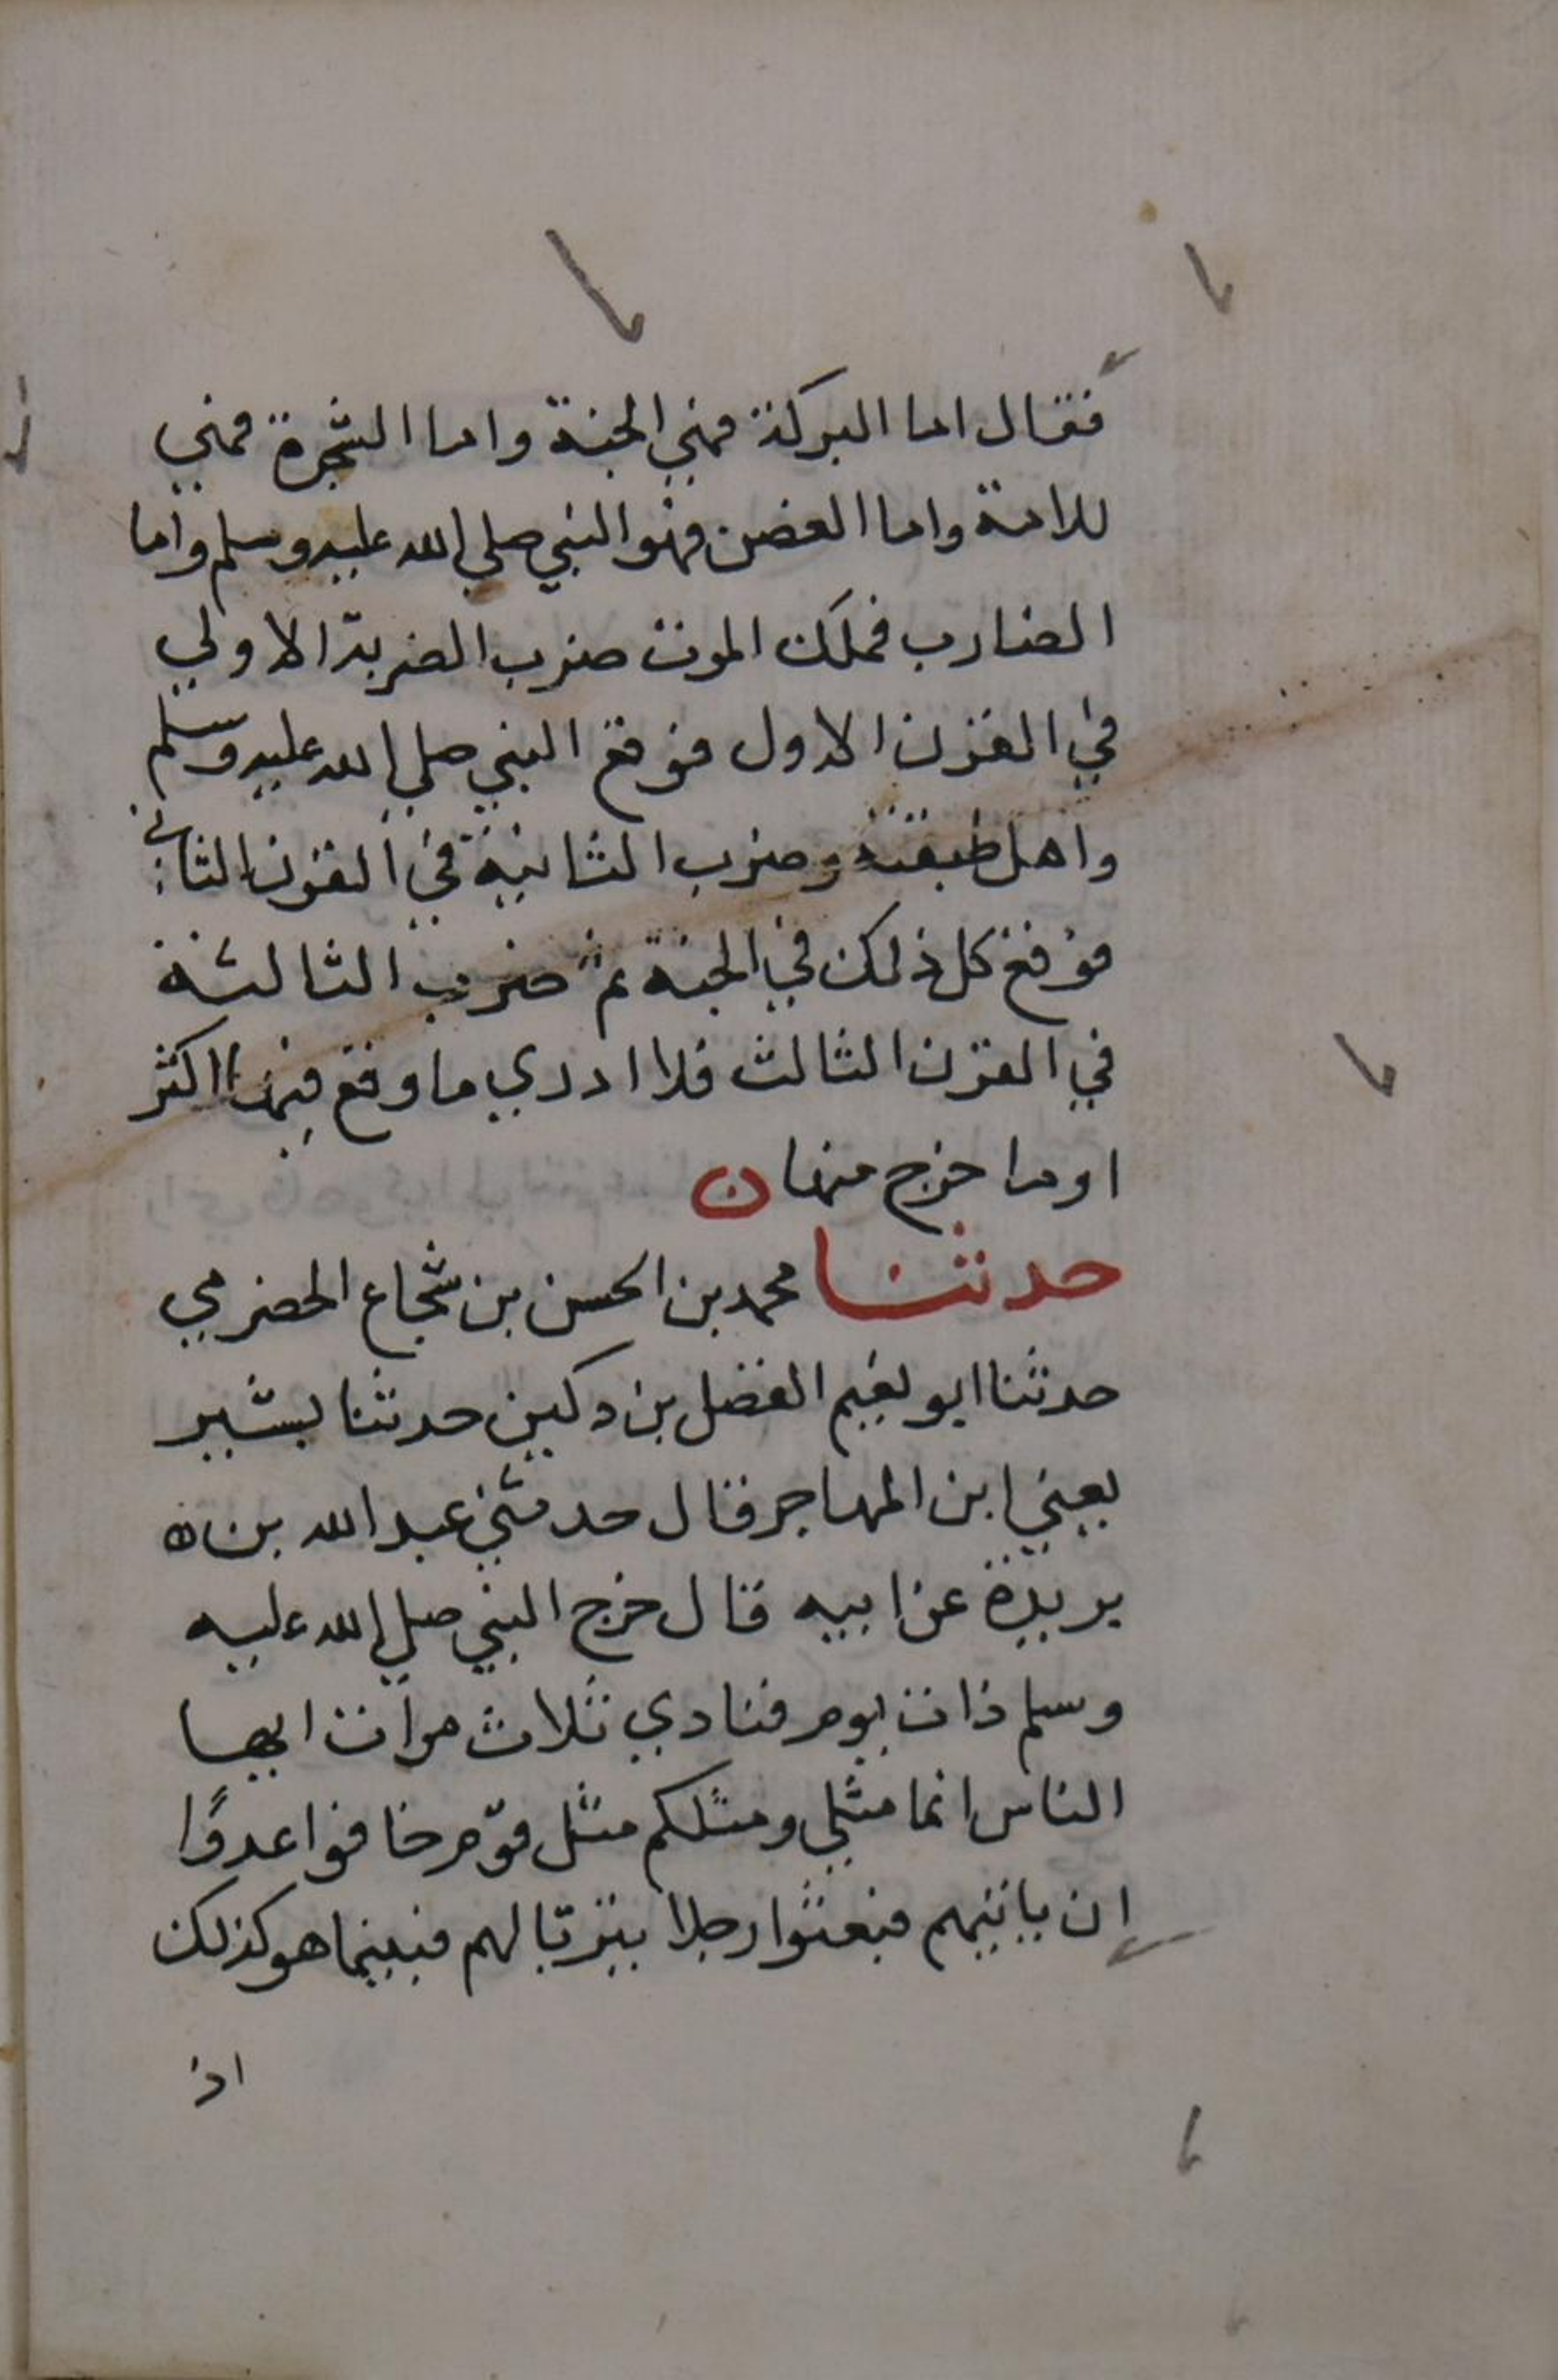 فقال اما البركة فهي الجنة واما الشجرة فهي
للامة واما الغصن فهو النبي صلي الله عليه وسلم واما
الضارب فملك الموت ضرب الضربة الاولي
في القرن الاول فوقع النبي صلي الله عليه وسلم
واهل طبقته وضرب الثانية في القرن الثاني
فوقع كل ذلك في الجنة ثم ضرب الثالثة
في القرن الثالث فلا ادري ما وقع فيها اكثر
او ما خرج منها ن
حدثنا محمد بن الحسن بن شجاع الحضرمي
حدثنا ابو نعيم الفضل بن دكين حدثنا بشير
يعني ابن المهاجر قال حدثني عبد الله بن ه
بريدة عن ابيه قال خرج النبي صلي الله عليه
وسلم ذات يوم فنادي ثلاث مرات ايها
الناس انما مثلي ومثلكم مثل قوم خافوا عدوًا
ان ياتيهم فبعثوا رجلا يتربا لهم فبينما هو كذلك
اذ